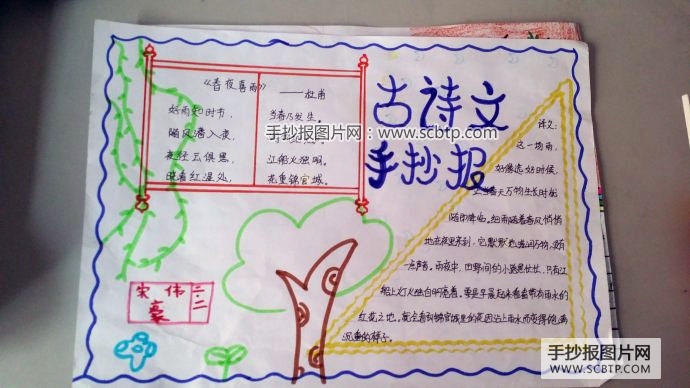 《春夜喜雨》
——杜甫
好雨知时节,
当春乃发生。
随风潜入夜,
野径云俱黑,
江船火独明。
晓看红湿处,
花重锦官城。
手抄报图片网:www.scbtp.com
古诗文
手抄报
译文:
这一场雨,
好像选好时候,
正当春天万物生长时就
随即降临。细雨随着春风悄悄
地在夜里来到,它默默地滋润万物,没有
一点声音。雨夜中,田野间的小路黑茫茫,只有江
船上灯火独自明亮着。要是早晨起来看看带有雨水的
红花之地。就会看到锦官城里的
沉重的样子。
宋伟豪
二.二
手抄报图片网
WWW.SCBTP.COM